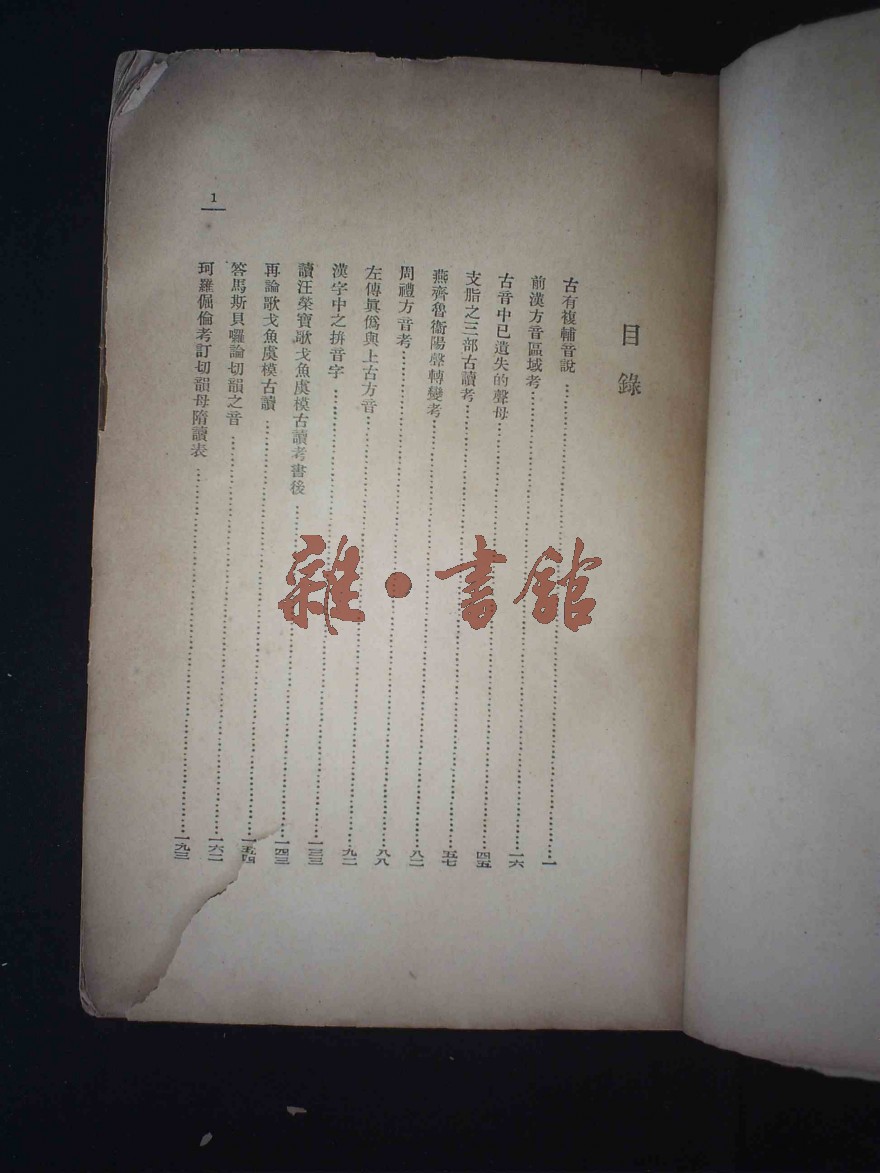 目錄
古有複輔音說……一
前漢方音區域考……一六
古音中已遺失的聲母……四五
支脂之三部古讀考……五七
燕齊魯衞陽聲轉變考……八二
周禮方音考……八八
左傳眞僞與上古方音……九二
漢字中之拚音字……一三三
讀汪榮寶歌戈魚虞模古讀考書後……一四三
再論歌戈魚虞模古讀……一五四
答馬斯貝囉論切韻之音……一六二
珂羅倔倫考訂切韻母隋讀表……一九三
1
雜·書館